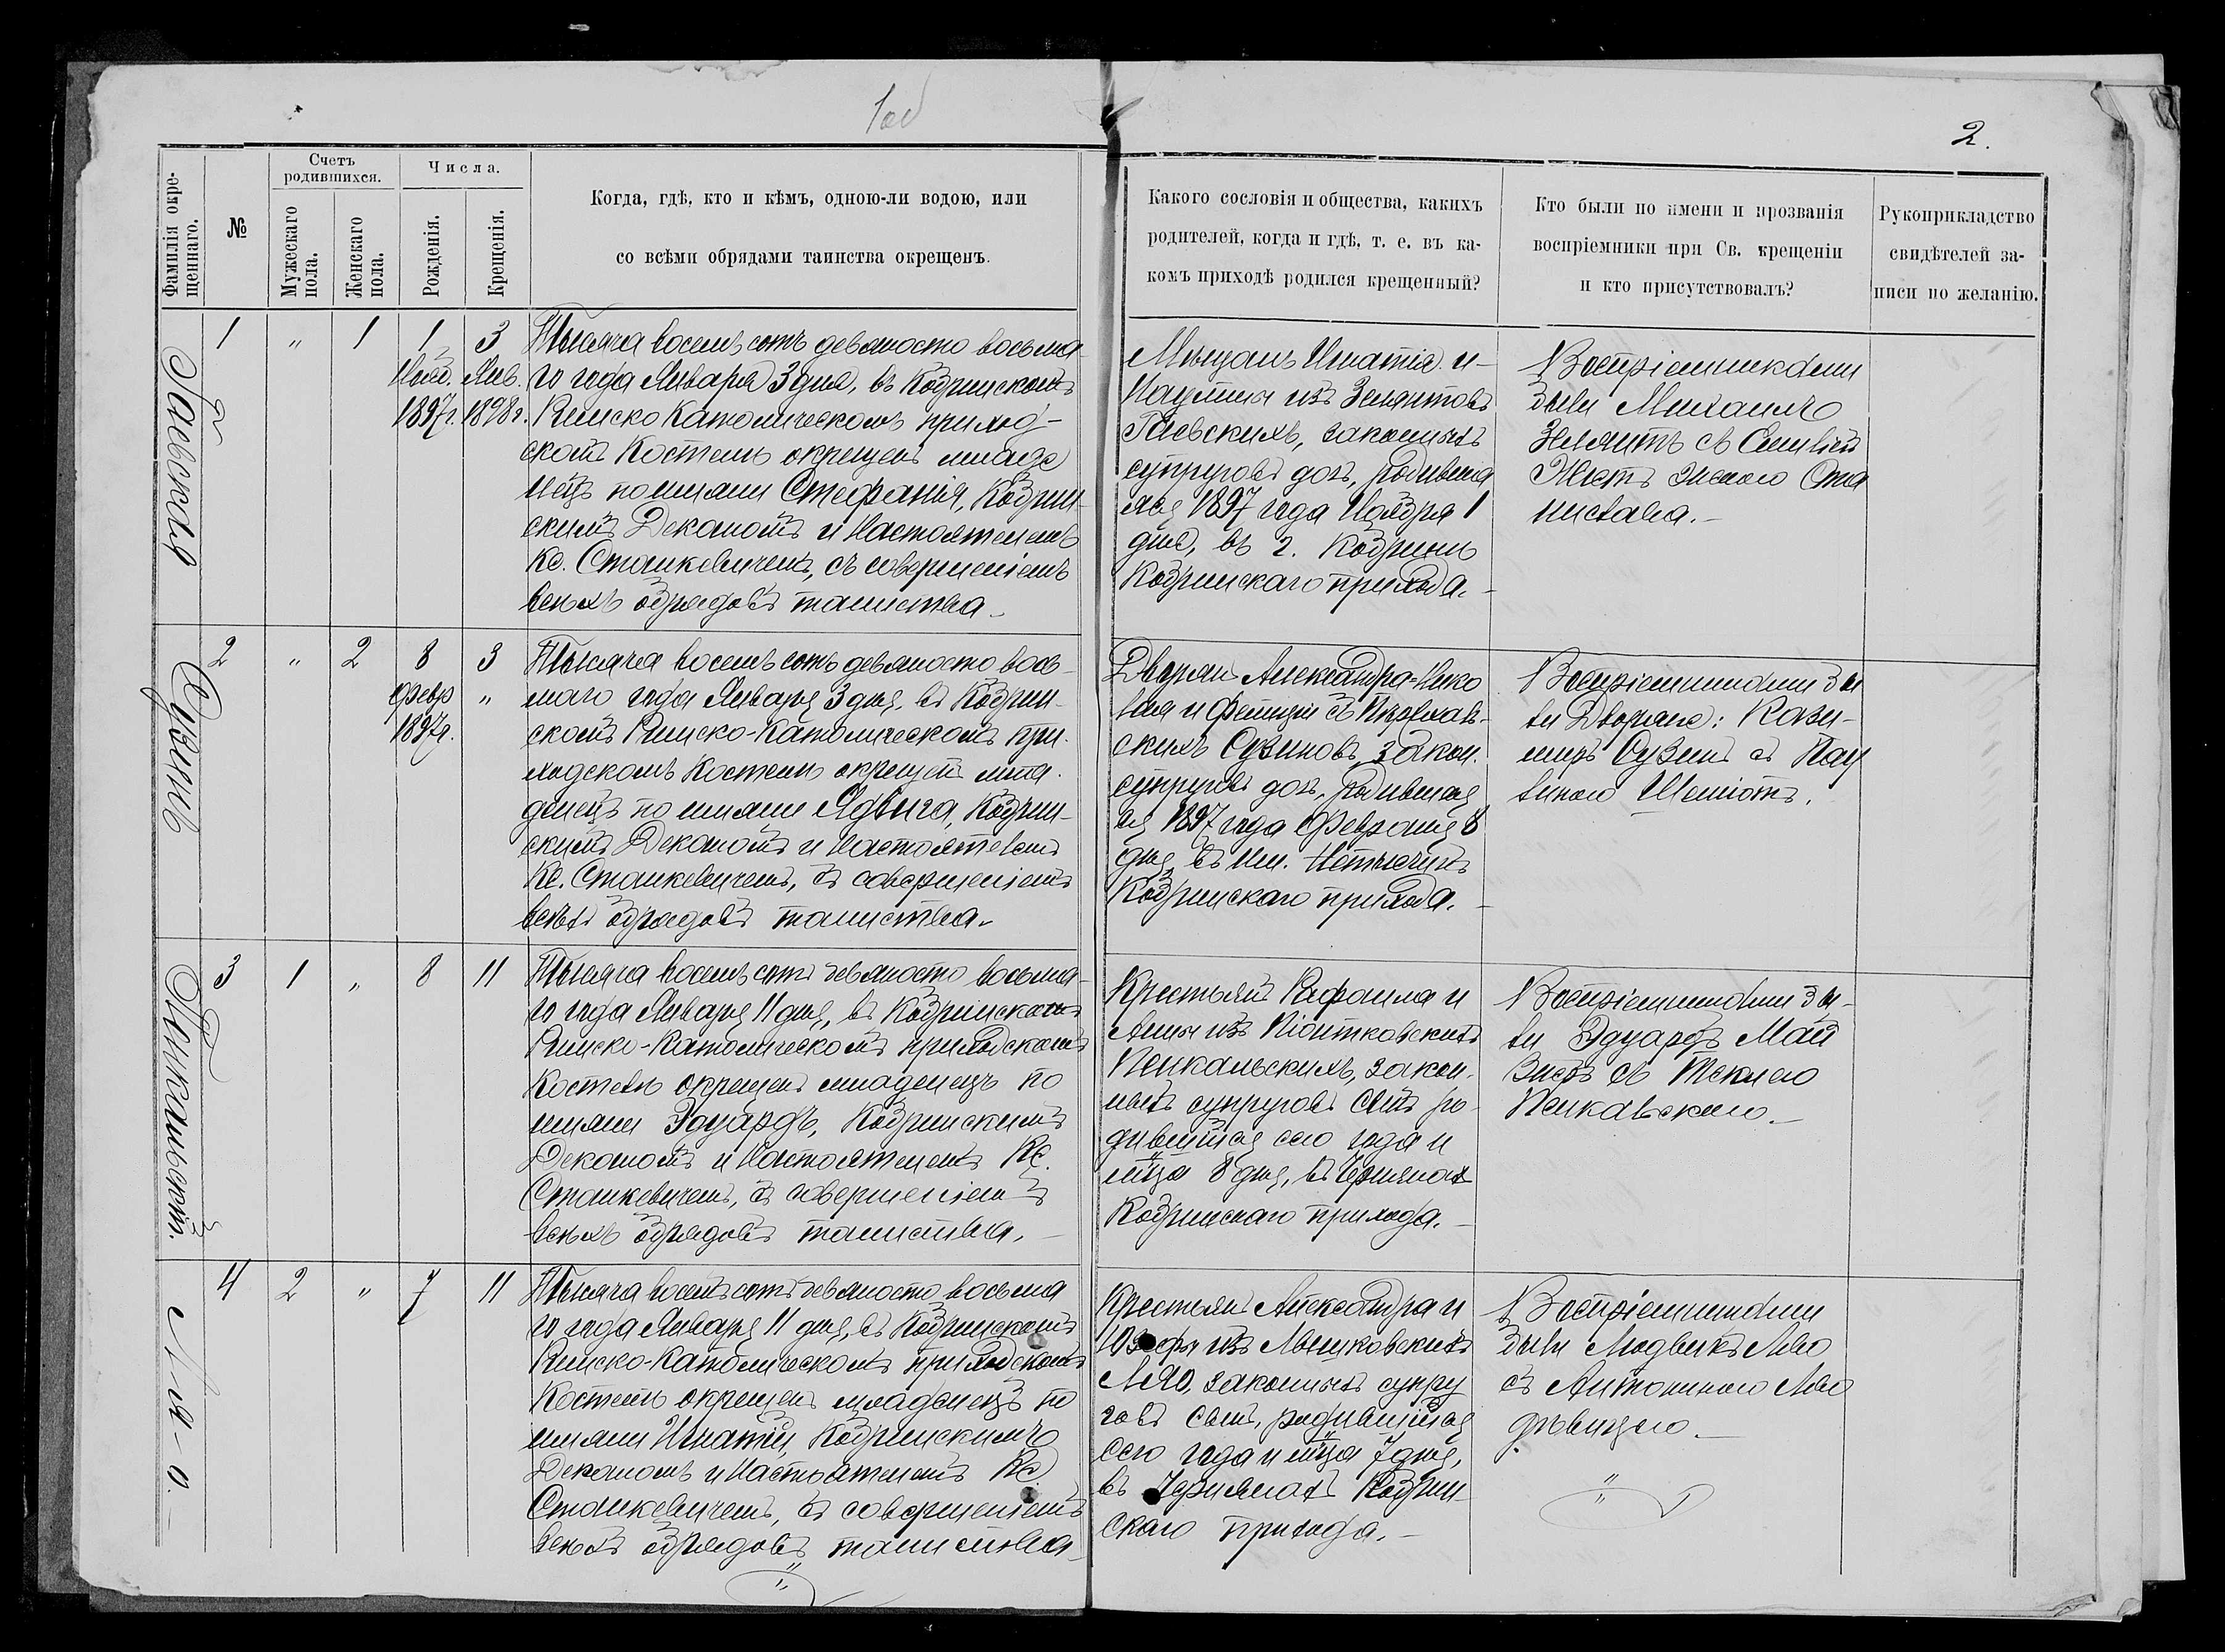 1об
2.
Фамилія окре-
щеннаго.
№
Счетъ
родившихся.
Мужескаго
пола.
Женскаго
пола.
Числа.
Рожденія.
Крещенія.
Когда, гдѣ, кто и кѣмъ, одною-ли водою, или
со всѣми обрядами таинства окрещенъ.
Какого сословія и общества, какихъ
родителей, когда и гдѣ, т. е. въ ка-
комъ приходѣ родился крещенный?
Кто были по имени и прозванія
воспріемники при Св. крещеніи
и кто присутствовалъ?
Рукоприкладство
свидѣтелей за-
писи по желанію.
Гаевская
1 " 1 1 3
Нояб. Янв.
1897г. 1898г.
Тысяча восемь сотъ девяносто восьма-
го года Января 3 дня, въ Кобринскомъ
Римско Католическомъ приход-
скомъ Костелѣ окрещенъ младе
нецъ по имени Стефанія, Кобрин-
скимъ Деканомъ и Настоятелемъ
Кс. Станкевичемъ, съ совершеніемъ
всѣхъ обрядовъ таинства.
Мѣщанъ Игнатія и
Паулины изъ Зелянтовъ
Гаевскихъ, законныхъ
супруговъ дочь, родивша
яся 1897 года Ноября 1
дня, въ г. Кобринѣ
Кобринскаго прихода.
Воспріемниками
были Михаилъ
Зелянтъ съ Емиліей
женою Ста
нислава.
Сузинъ
2 " 2 8 3
Февр "
1897г.
Тысяча восемь сотъ девяносто вось-
маго года Января 3 дня, въ Кобрин-
скомъ Римско-Католическомъ при-
ходскомъ Костелѣ окрещенъ мла-
денецъ по имени Ядвига, Кобрин-
скимъ Деканомъ и Настоятелемъ
Кс. Станкевичемъ, съ совершеніемъ
всѣхъ обрядовъ таинства.
Дворянъ Александра-
и Фелиціи съ
скихъ Сузиновъ, закон.
супруговъ дочь, родившая
ся 1897 года Февраля 8
дня, въ им.
Кобринскаго прихода.
Воспріемниками бы
ли Дворяне: Кази-
миръ Сузинъ съ Пау
линою
Пенкальскій.
3 1 " 8 11
Тысяча восемь сотъ девяносто восьма-
го года Января 11 дня, въ Кобринскомъ
Римско-Католическомъ приходскомъ
Костелѣ окрещенъ младенецъ по
имени Эдуардъ, Кобринскимъ
Деканомъ и Настоятелемъ Кс.
Станкевичемъ, съ совершеніемъ
всѣхъ обрядовъ таинства.
Крестьянъ Рафаила и
Анны изъ Піонтковскихъ
Пенкальскихъ, закон-
ныхъ супруговъ сынъ ро-
дившійся сего года и
мѣсяца 8 дня, въ Черянахъ
Кобринскаго прихода.
Воспріемниками бы-
ли Эдуардъ
съ Теклею
Пенкальскою.
Ляхо.
4 2 " 7 11
Тысяча восемь сотъ девяносто восьма
го года Января 11 дня, въ Кобринскомъ
Римско-Католическомъ приходскомъ
Костелѣ окрещенъ младенецъ по
имени Игнатій, Кобринскимъ
Деканомъ и Настоятелемъ Кс.
Станкевичемъ, съ совершеніемъ
всѣхъ обрядовъ таинства.
Крестьянъ Александра и
Юзефы изъ
законныхъ супру
говъ сынъ, родившійся
сего года и мѣсяца 7 дня,
въ Черянахъ Кобрин-
скаго прихода.
Воспріемниками
были Людвикъ
съ Антониною
дѣвицею.